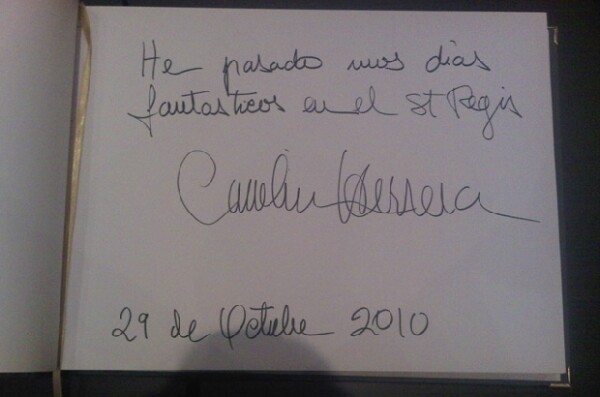 He pasado unos días
fantasticos en el St Regis
Carolina Herrera
29 de Octubre 2010